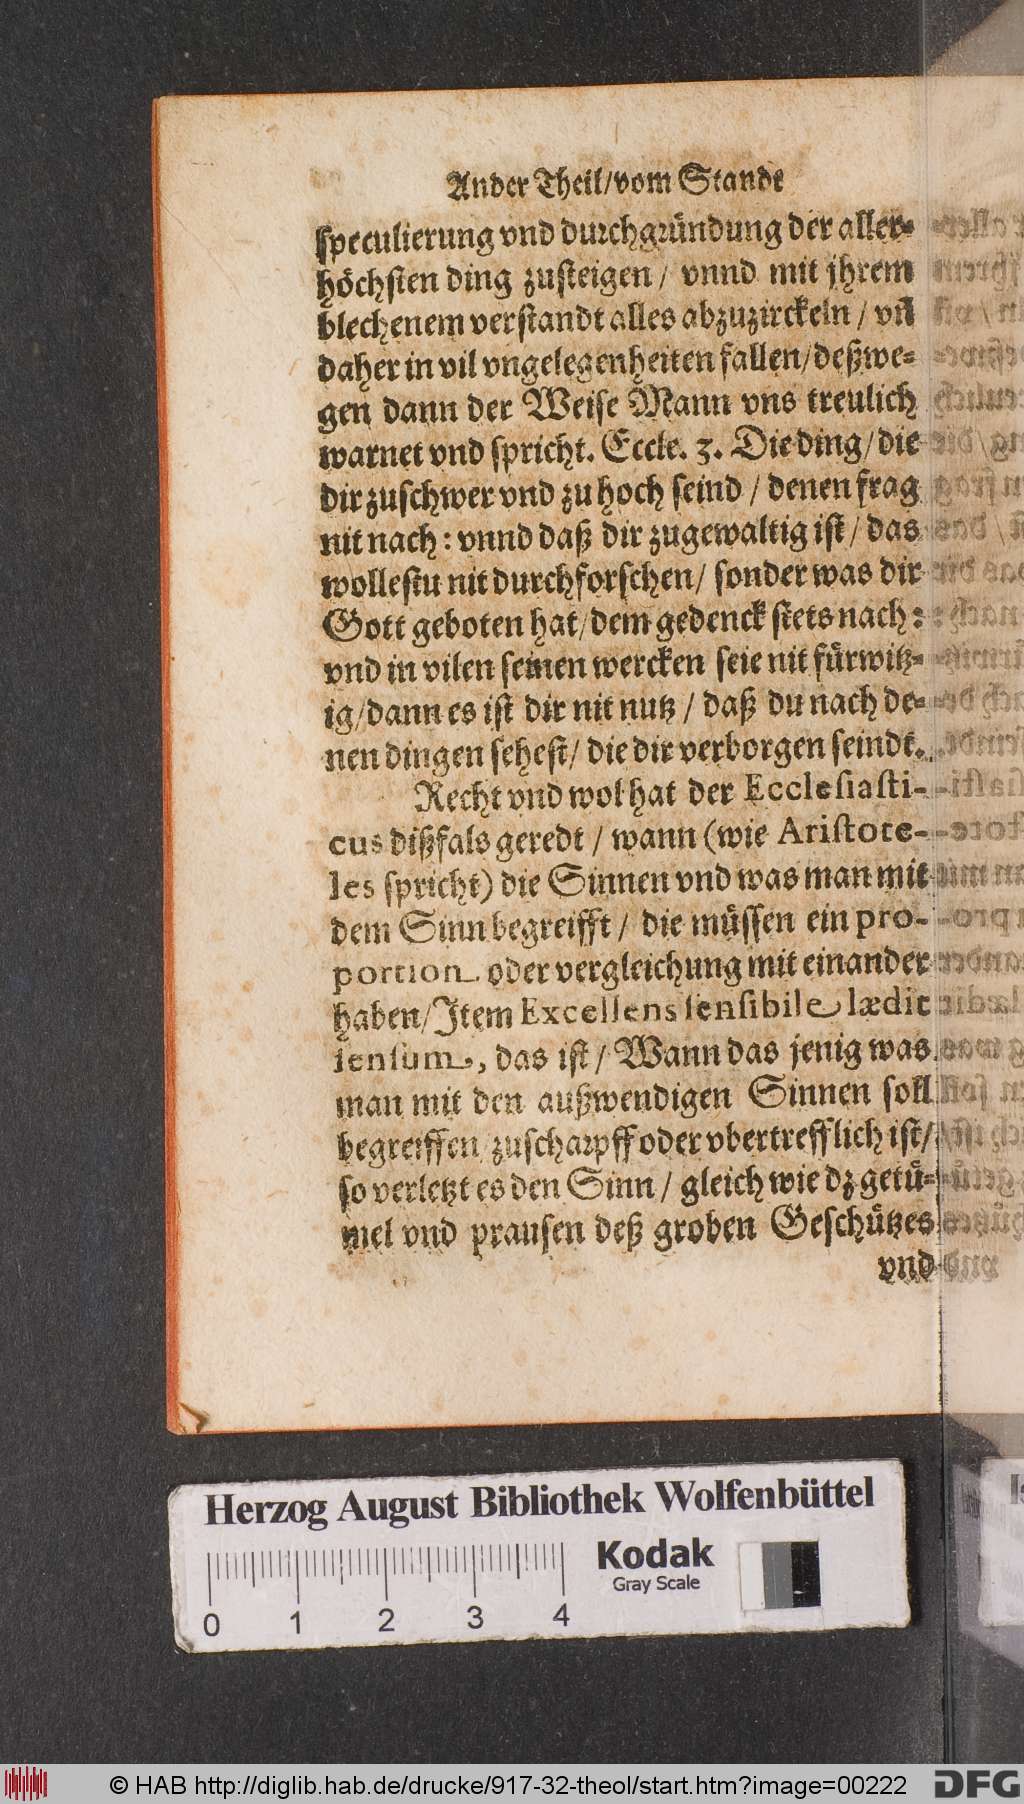 Ander Theil/vom Stande
speculierung vnd durchgründung der aller-
höchsten ding zusteigen / vnnd mit jhrem
blechenem verstandt alles abzuzirckeln / vñ
daher in vil vngelegenheiten fallen/deßwe-
gen dann der Weise Mann vns treulich
warnet vnd spricht. Eccle. 3. Die ding/die
dir zuschwer vnd zu hoch seind / denen frag
nit nach: vnnd daß dir zugewaltig ist / das
wollestu nit durchforschen/ sonder was dir
Gott geboten hat/dem gedenck stets nach:
vnd in vilen seinen wercken seie nit fürwitz-
ig/dann es ist dir nit nutz / daß du nach de-
nen dingen sehest/ die dir verborgen seindt.
Recht vnd wol hat der Ecclesiasti-
cus dißfals geredt / wann (wie Aristote-
les spricht) die Sinnen vnd was man mit
dem Sinn begreifft / die müssen ein pro-
portion oder vergleichung mit einander
haben/Item Excellens sensibile lædit
sensum, das ist / Wann das jenig was
man mit den außwendigen Sinnen soll
begreiffen zuscharpff oder vbertrefflich ist/
so verletzt es den Sinn / gleich wie dz getü-
mel vnd prausen deß groben Geschützes
vnd
Herzog August Bibliothek Wolfenbüttel
Kodak
Gray Scale
0 1 2 3 4
© HAB http://diglib.hab.de/drucke/917-32-theol/start.htm?image=00222
DFG